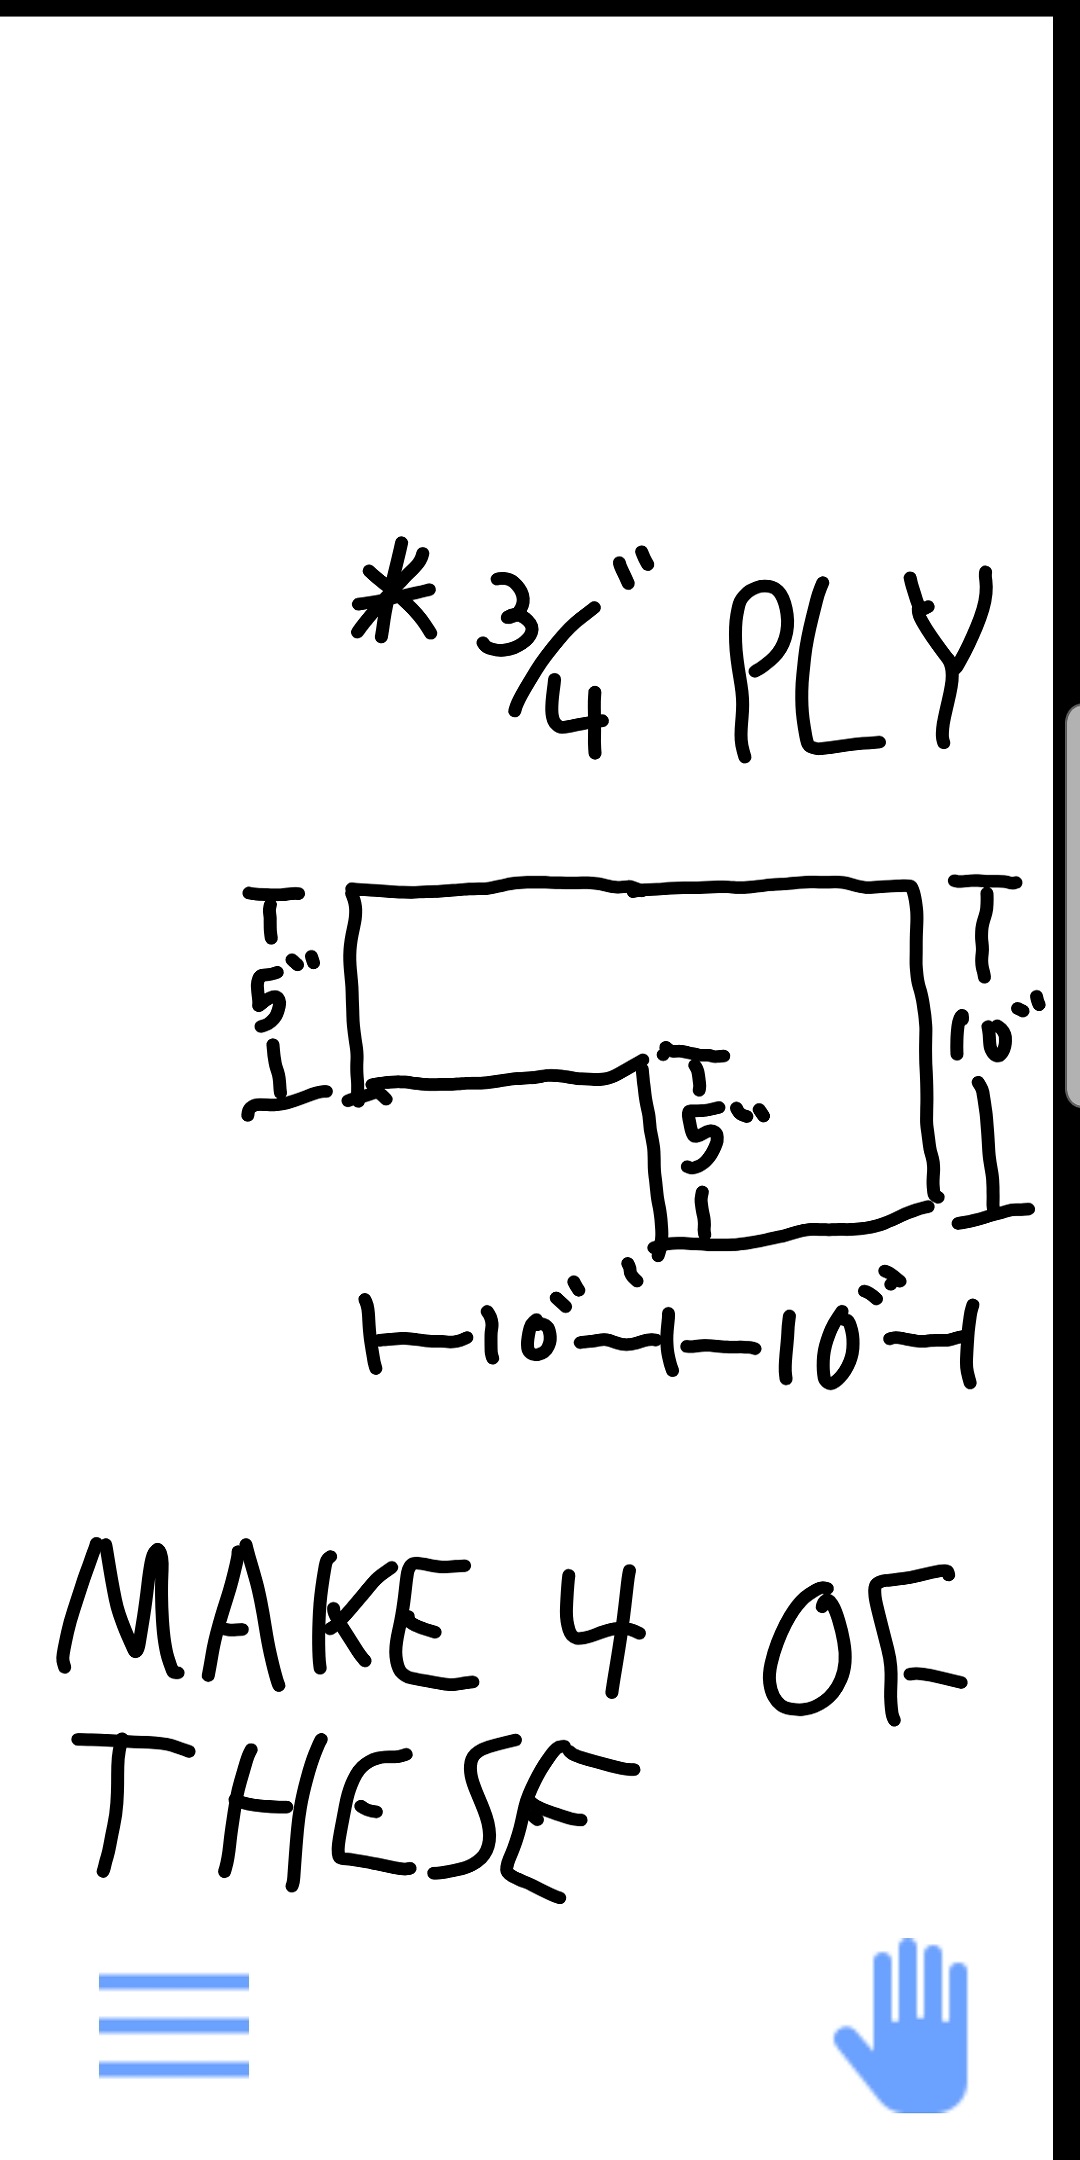 * 3/4" PLY
5"
10"
5"
10" 10"
MAKE 4 OF
THESE